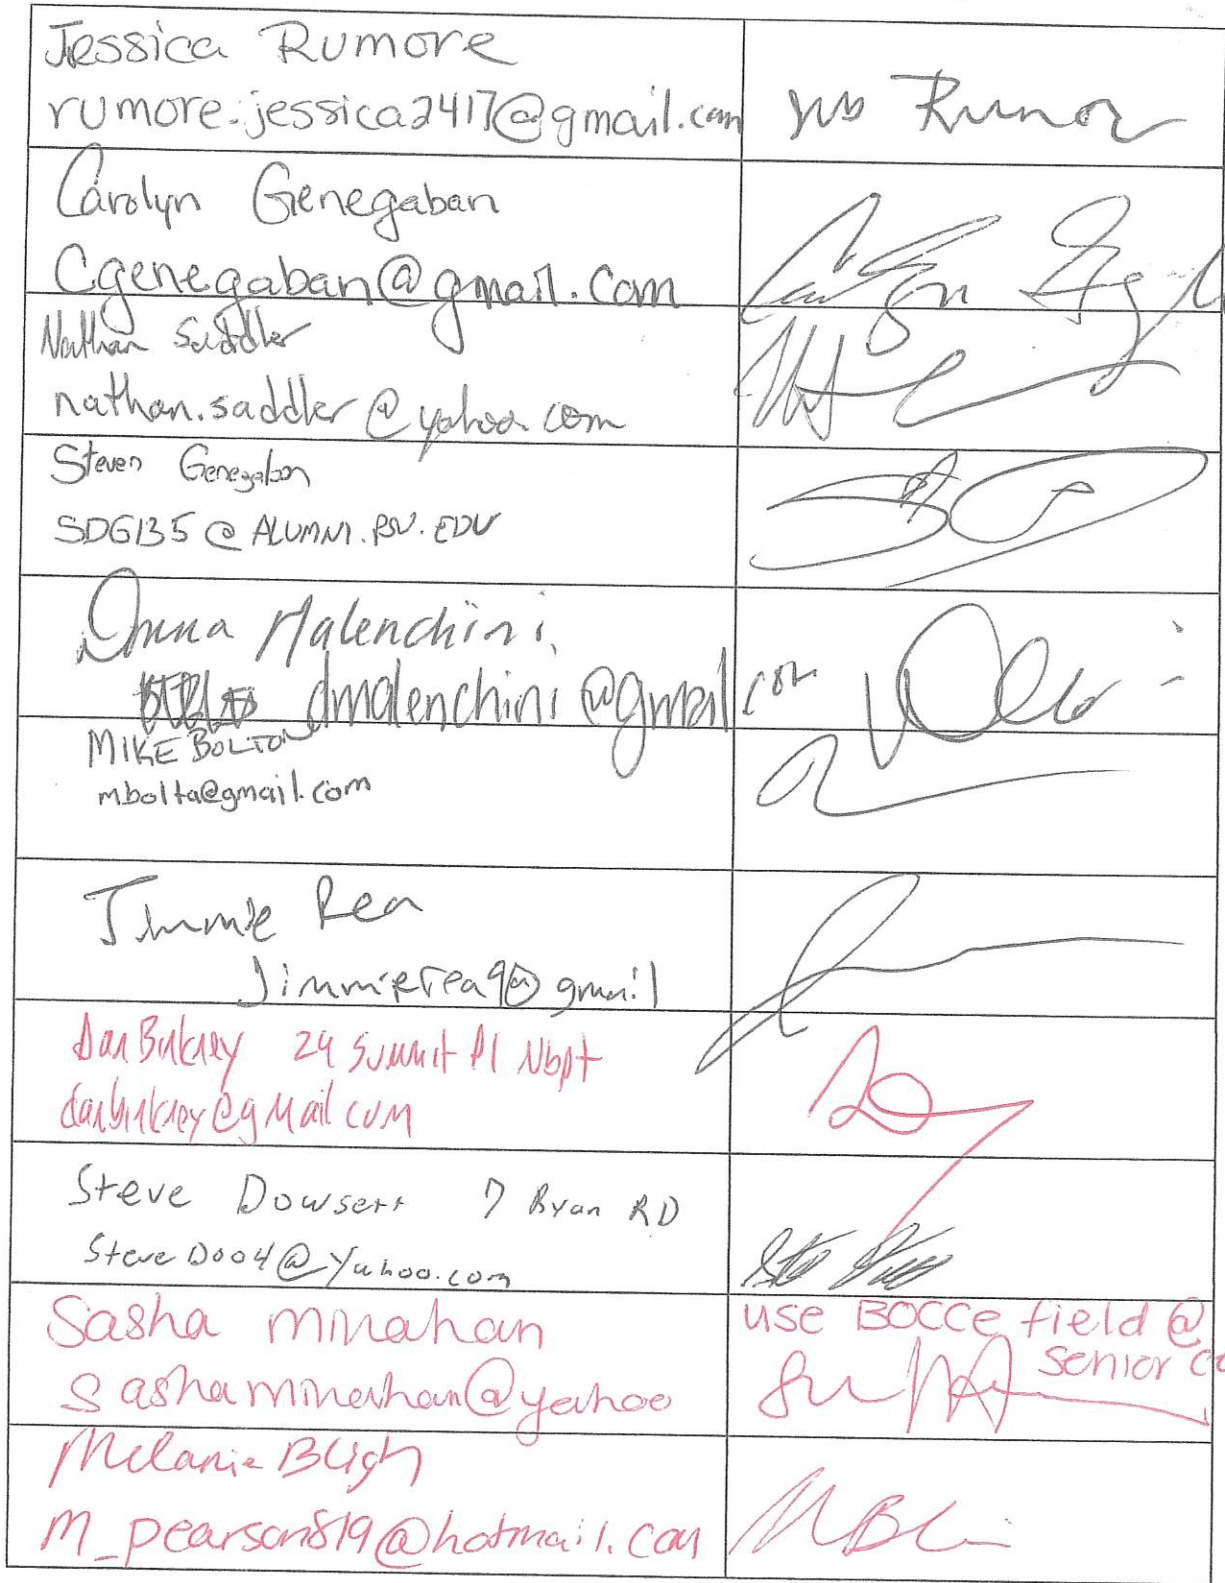 Jessica Rumore
rumore.jessica2417@gmail.com
Carolyn Genegaban
Cgenegaban@gmail.com
Nathan Saddler
nathan.saddler@yahoo.com
Steven Genegaban
SDG135@ALUMNI.PSU.EDU
Donna Malenchini
dmalenchini@gmail.com
MIKE BOLTON
mbolta@gmail.com
Jimmie Rea
Jimmierea9@gmail
Dan Binkney 24 Summit Pl Nbpt
danbinkney@gmail.com
Steve Dowsett 7 Ryan RD
SteveD004@Yahoo.com
Sasha Minahan
use BOCCE field @
senior
sashaminahan@yahoo
Melanie Bligh
M_pearson819@hotmail.com